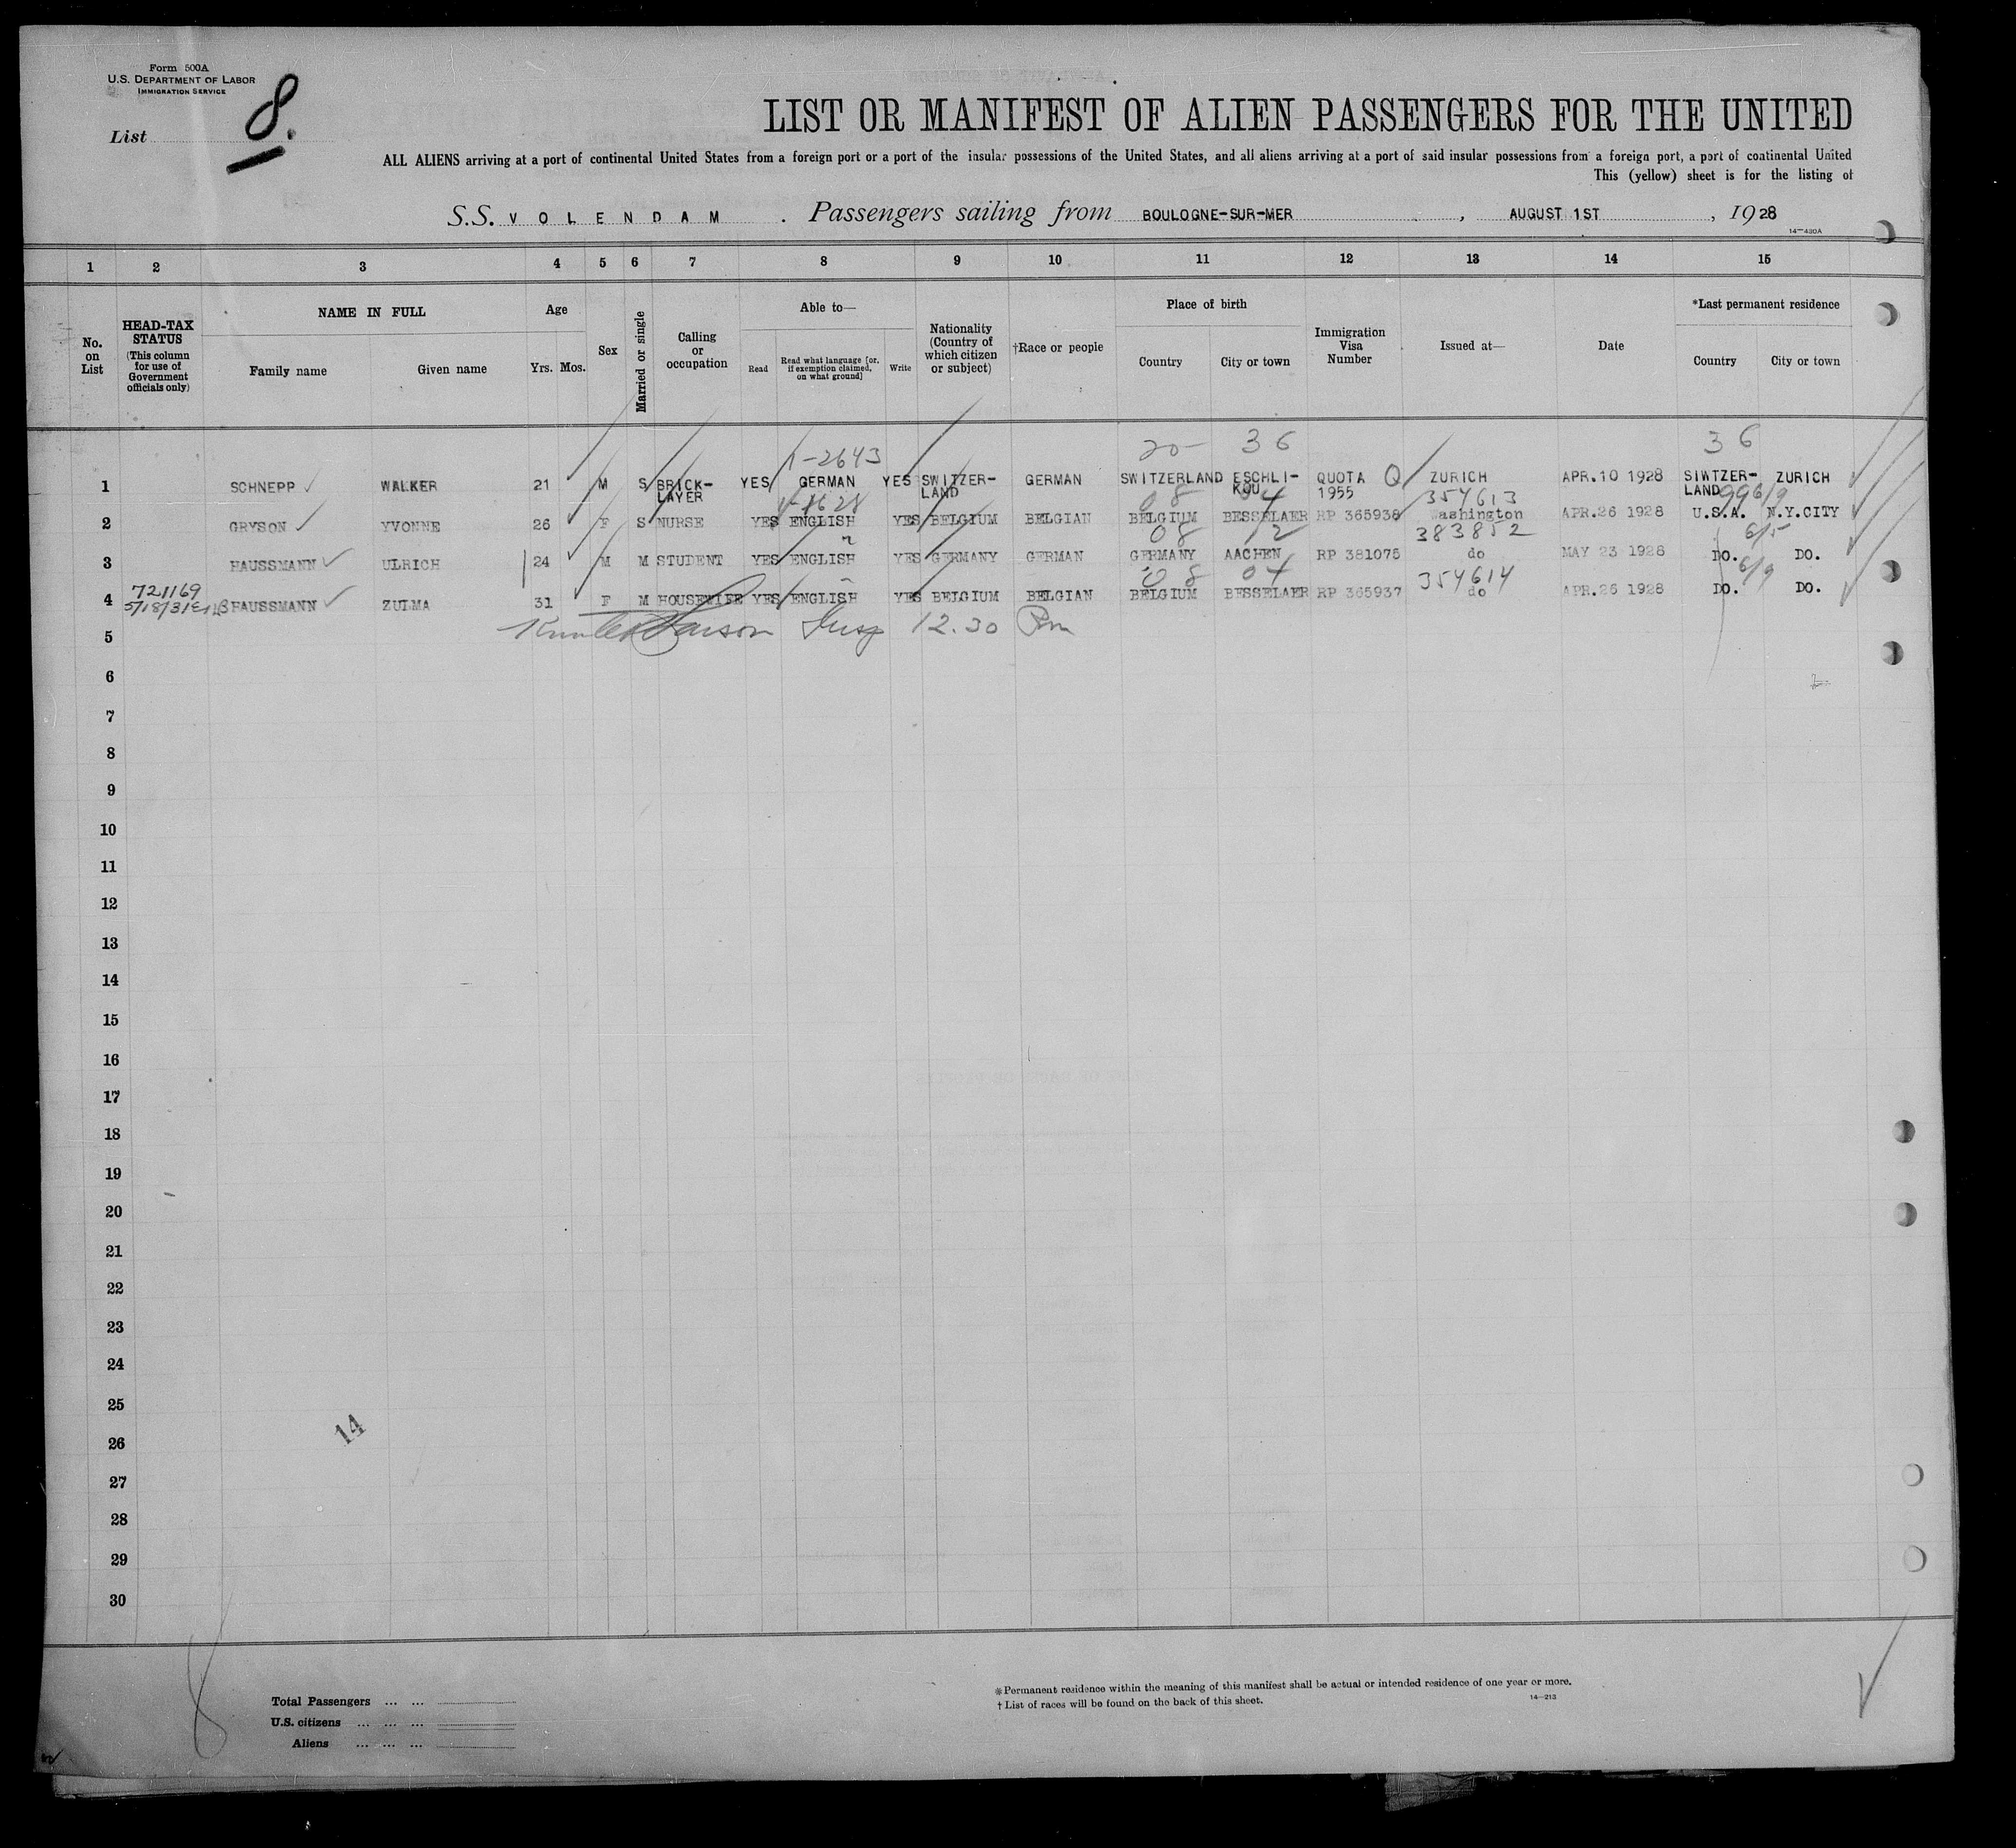 Form 500A
U.S. DEPARTMENT OF LABOR
IMMIGRATION SERVICE
List 8.
LIST OR MANIFEST OF ALIEN PASSENGERS FOR THE UNITED
ALL ALIENS arriving at a port of continental United States from a foreign port or a port of the insular possessions of the United States, and all aliens arriving at a port of said insular possessions from a foreign port, a port of continental United
This (yellow) sheet is for the listing of
S.S. VOLENDAM. Passengers sailing from BOULOGNE-SUR-MER, AUGUST 1ST, 1928
14—430A
1 2 3 4 5 6 7 8 9 10 11 12 13 14 15
No. on List
HEAD-TAX STATUS (This column for use of Government officials only)
NAME IN FULL
Family name Given name
Age
Yrs. Mos.
Sex
Married or single
Calling or occupation
Able to—
Read Read what language [or, if exemption claimed, on what ground] Write
Nationality (Country of which citizen or subject)
†Race or people
Place of birth
Country City or town
Immigration Visa Number
Issued at—
Date
*Last permanent residence
Country City or town
20- 36 36
1-2643
1 SCHNEPP WALKER 21 M S BRICK-LAYER YES GERMAN YES SWITZER-LAND GERMAN SWITZERLAND QUOTA 1955 Q ZURICH APR.10 1928 SIWTZER-LAND ZURICH
08 04 354613 6/9
2 GRYSON YVONNE 26 F S NURSE YES ENGLISH YES BELGIUM BELGIAN BELGIUM BESSELAER RP 365938 Washington APR.26 1928 U.S.A. N.Y.CITY
08 12 383852 6/5
3 HAUSSMANN ULRICH 24 M M STUDENT YES ENGLISH YES GERMANY GERMAN GERMANY AACHEN RP 381075 do MAY 23 1928 DO. DO.
721169 08 04 354614 6/9
4 5/18/31 HAUSSMANN ZULMA 31 F M HOUSEWIFE YES ENGLISH YES BELGIUM BELGIAN BELGIUM BESSELAER RP 365937 do APR.26 1928 DO. DO.
5 Insp 12.30 Pm
6
7
8
9
10
11
12
13
14
15
16
17
18
19
20
21
22
23
24
25
14
26
27
28
29
30
8
Total Passengers ... ...
U.S. citizens ... ... ...
Aliens ... ... ...
*Permanent residence within the meaning of this manifest shall be actual or intended residence of one year or more.
†List of races will be found on the back of this sheet.
14—213